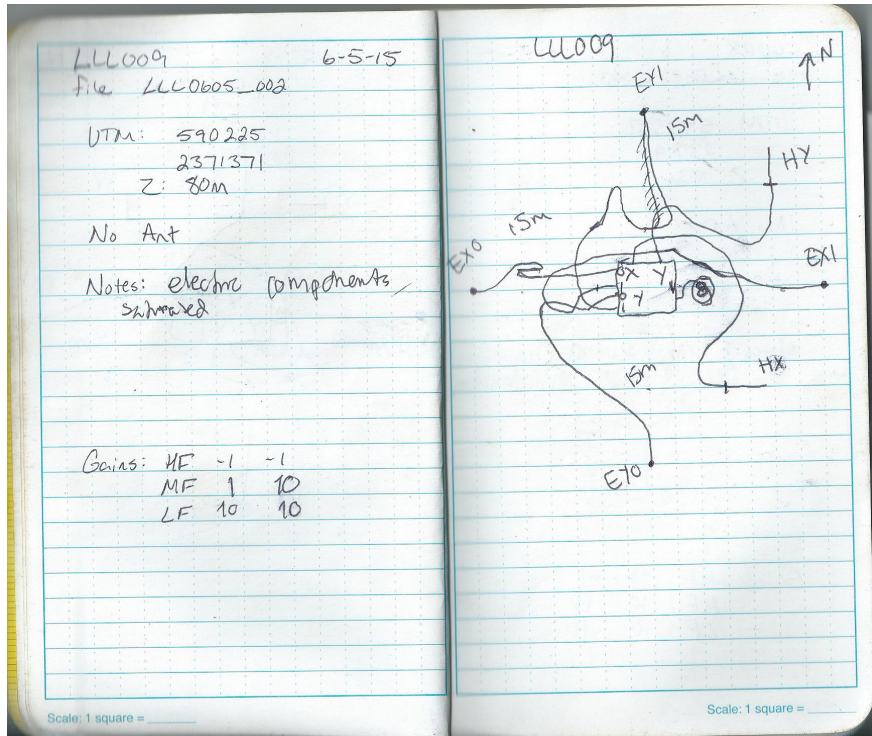 LLL009 6-5-15
file LLL0605_002
UTM: 590225
2371371
Z: 80m
No Ant
Notes: electric components,
Gains: HF -1 -1
MF 1 10
LF 10 10
Scale: 1 square =
LLL009
N
EY1
15m
HY
15m
EX0
EX1
X Y
Y
8
15m
HX
EY0
Scale: 1 square =